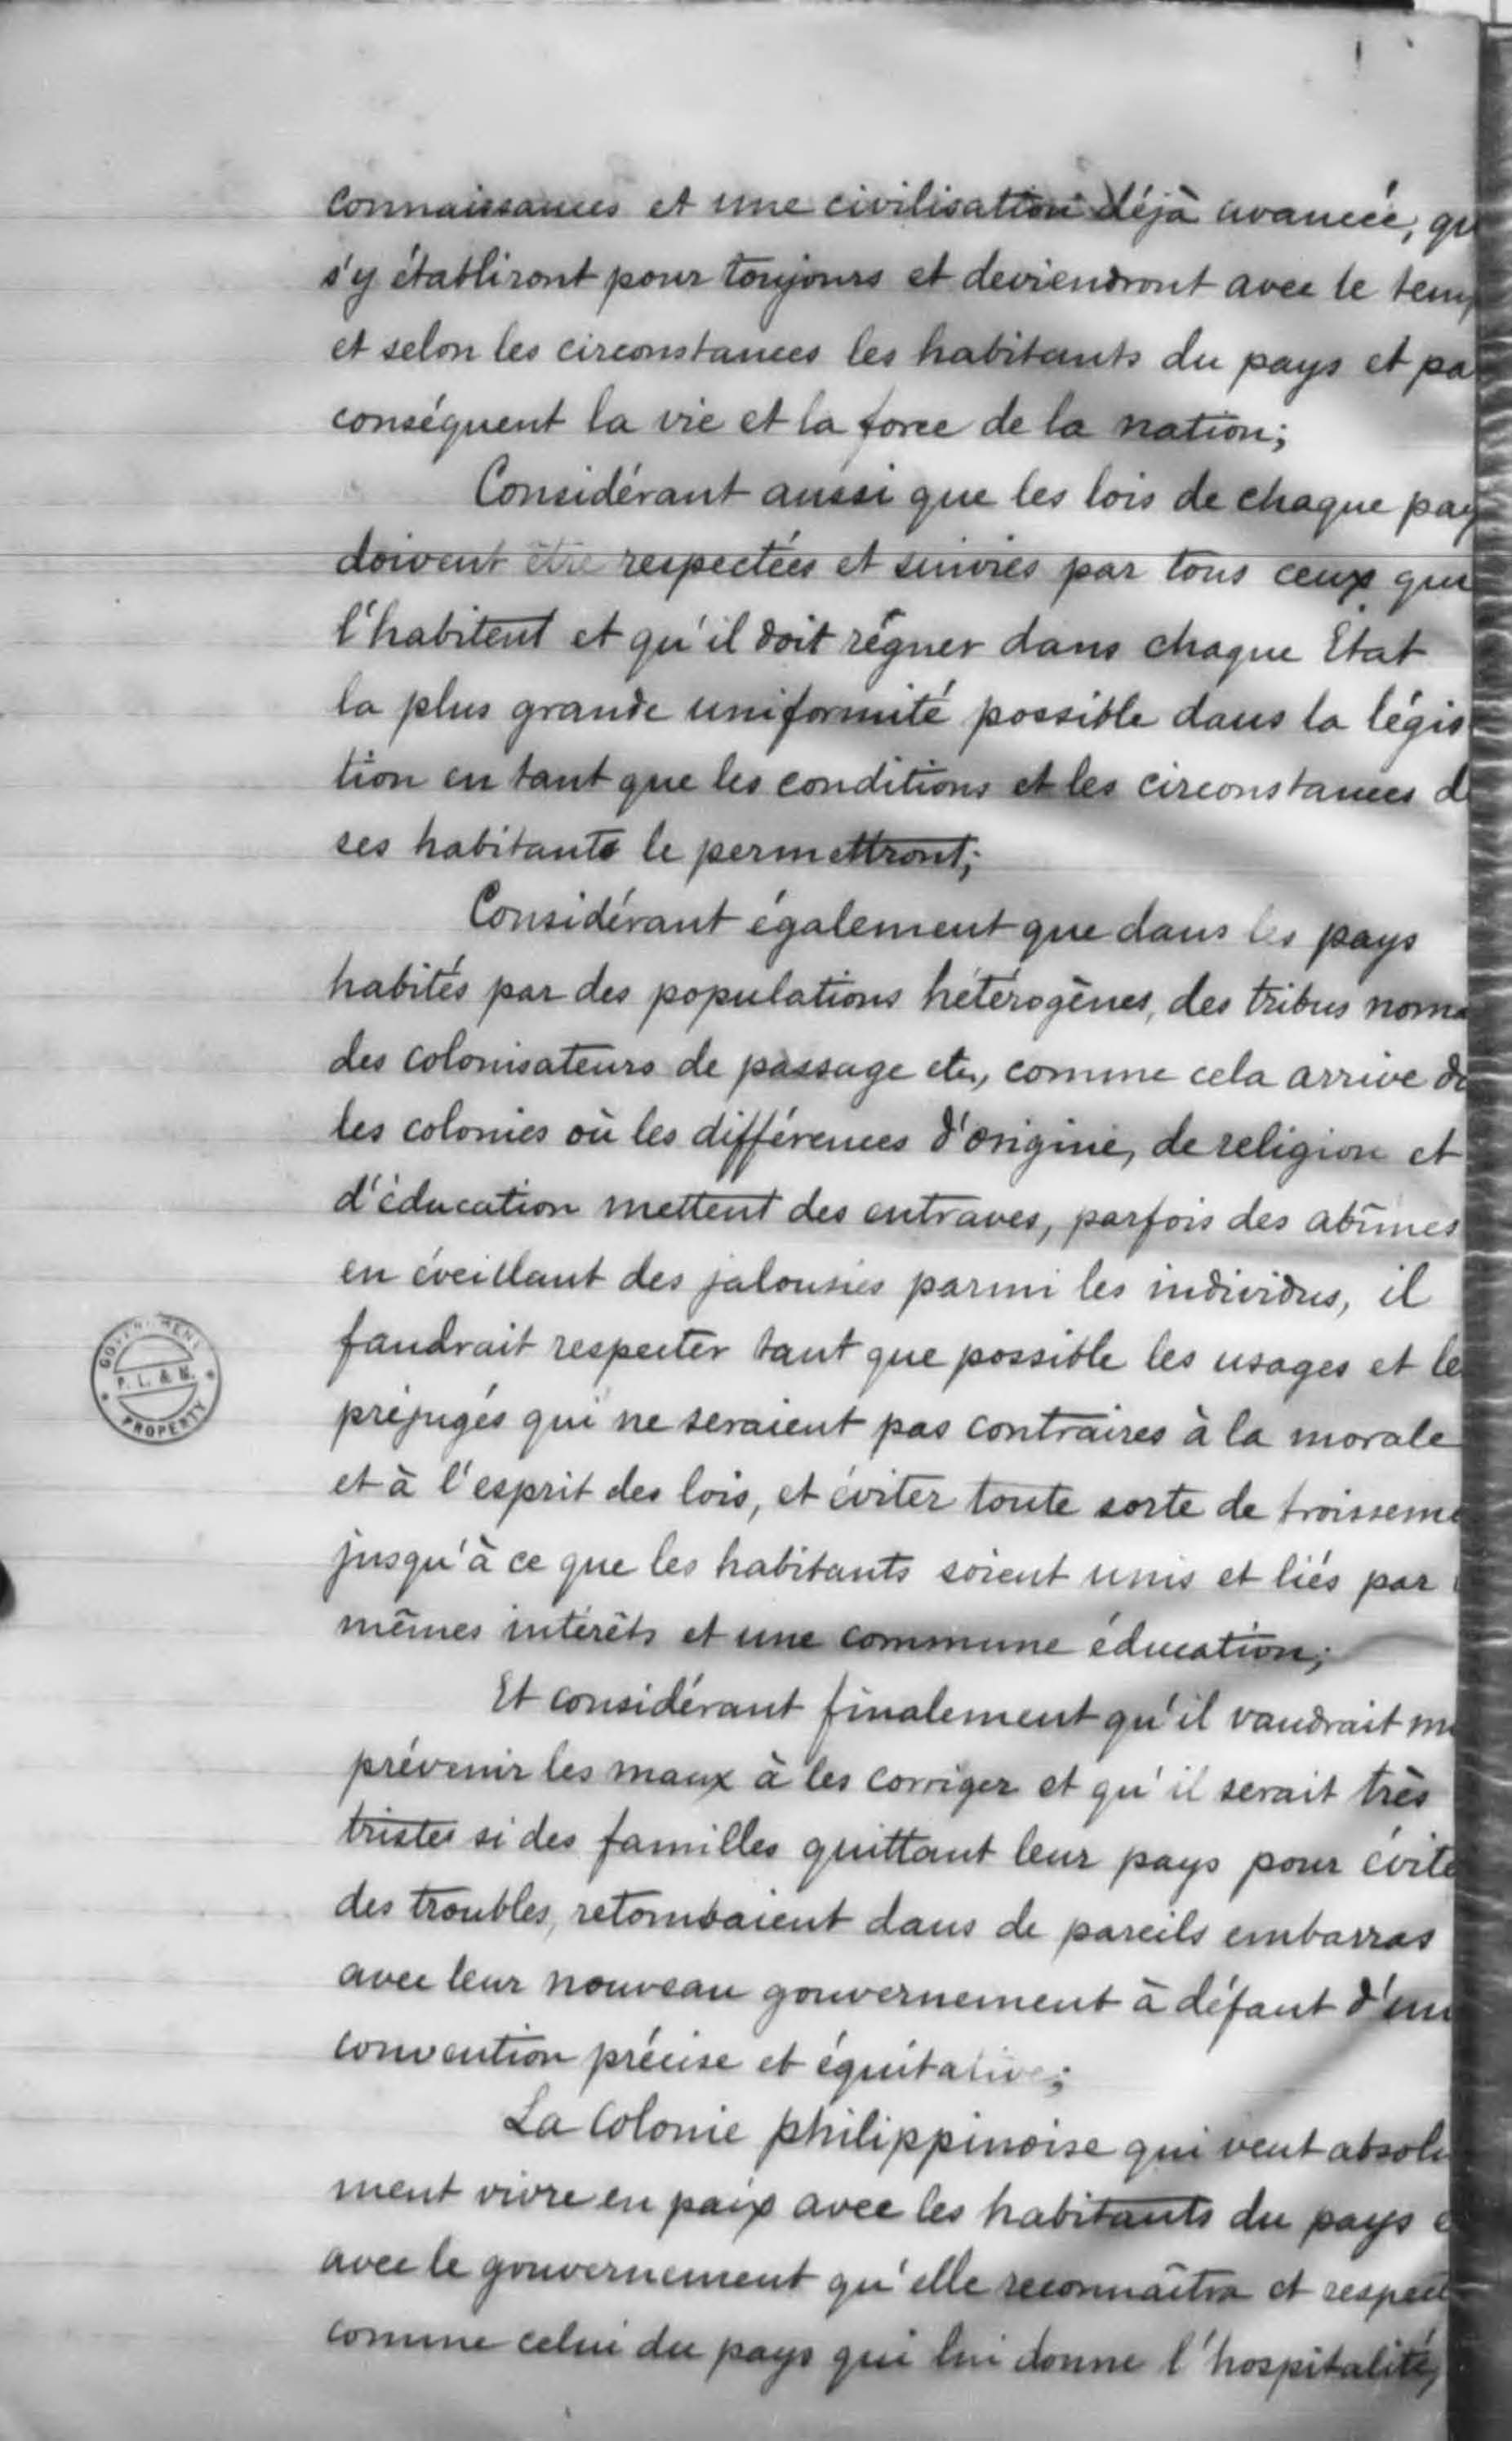 connaissances et une civilisation déjà avancée, qu
s'y établiront pour toujours et deviendront avec le temp
et selon les circonstances les habitants du pays et pa
conséquent la vie et la force de la nation;
Considérant aussi que les lois de chaque pay
doivent être respectées et suivies par tous ceux qui
l'habitent et qu'il doit régner dans chaque Etat
la plus grande uniformité possible dans la légis
tion en tant que les conditions et les circonstances d
ses habitants le permettront;
Considérant également que dans les pays
habités par des populations hétérogènes, des tribus noma
des colonisateurs de passage etc., comme cela arrive da
les colonies où les différences d'origine, de religion et
d'éducation mettent des entraves, parfois des abîmes
en éveillant des jalousies parmi les individus, il
faudrait respecter tant que possible les usages et le
préjugés qui ne seraient pas contraires à la morale
et à l'esprit des lois, et éviter toute sorte de froisseme
jusqu'à ce que les habitants soient unis et liés par
mêmes intérêts et une commune éducation;
Et considérant finalement qu'il vaudrait mi
prévenir les maux à les corriger et qu'il serait très
triste si des familles quittant leur pays pour évite
des troubles, retombaient dans de pareils embarras
avec leur nouveau gouvernement à défaut d'un
convention précise et équitative;
GOVERNMENT
P. L. & M.
PROPERTY
La Colonie philippinoise qui veut absolu
ment vivre en paix avec les habitants du pays e
avec le gouvernement qu'elle reconnaîtra et respect
comme celui du pays qui lui donne l'hospitalité,